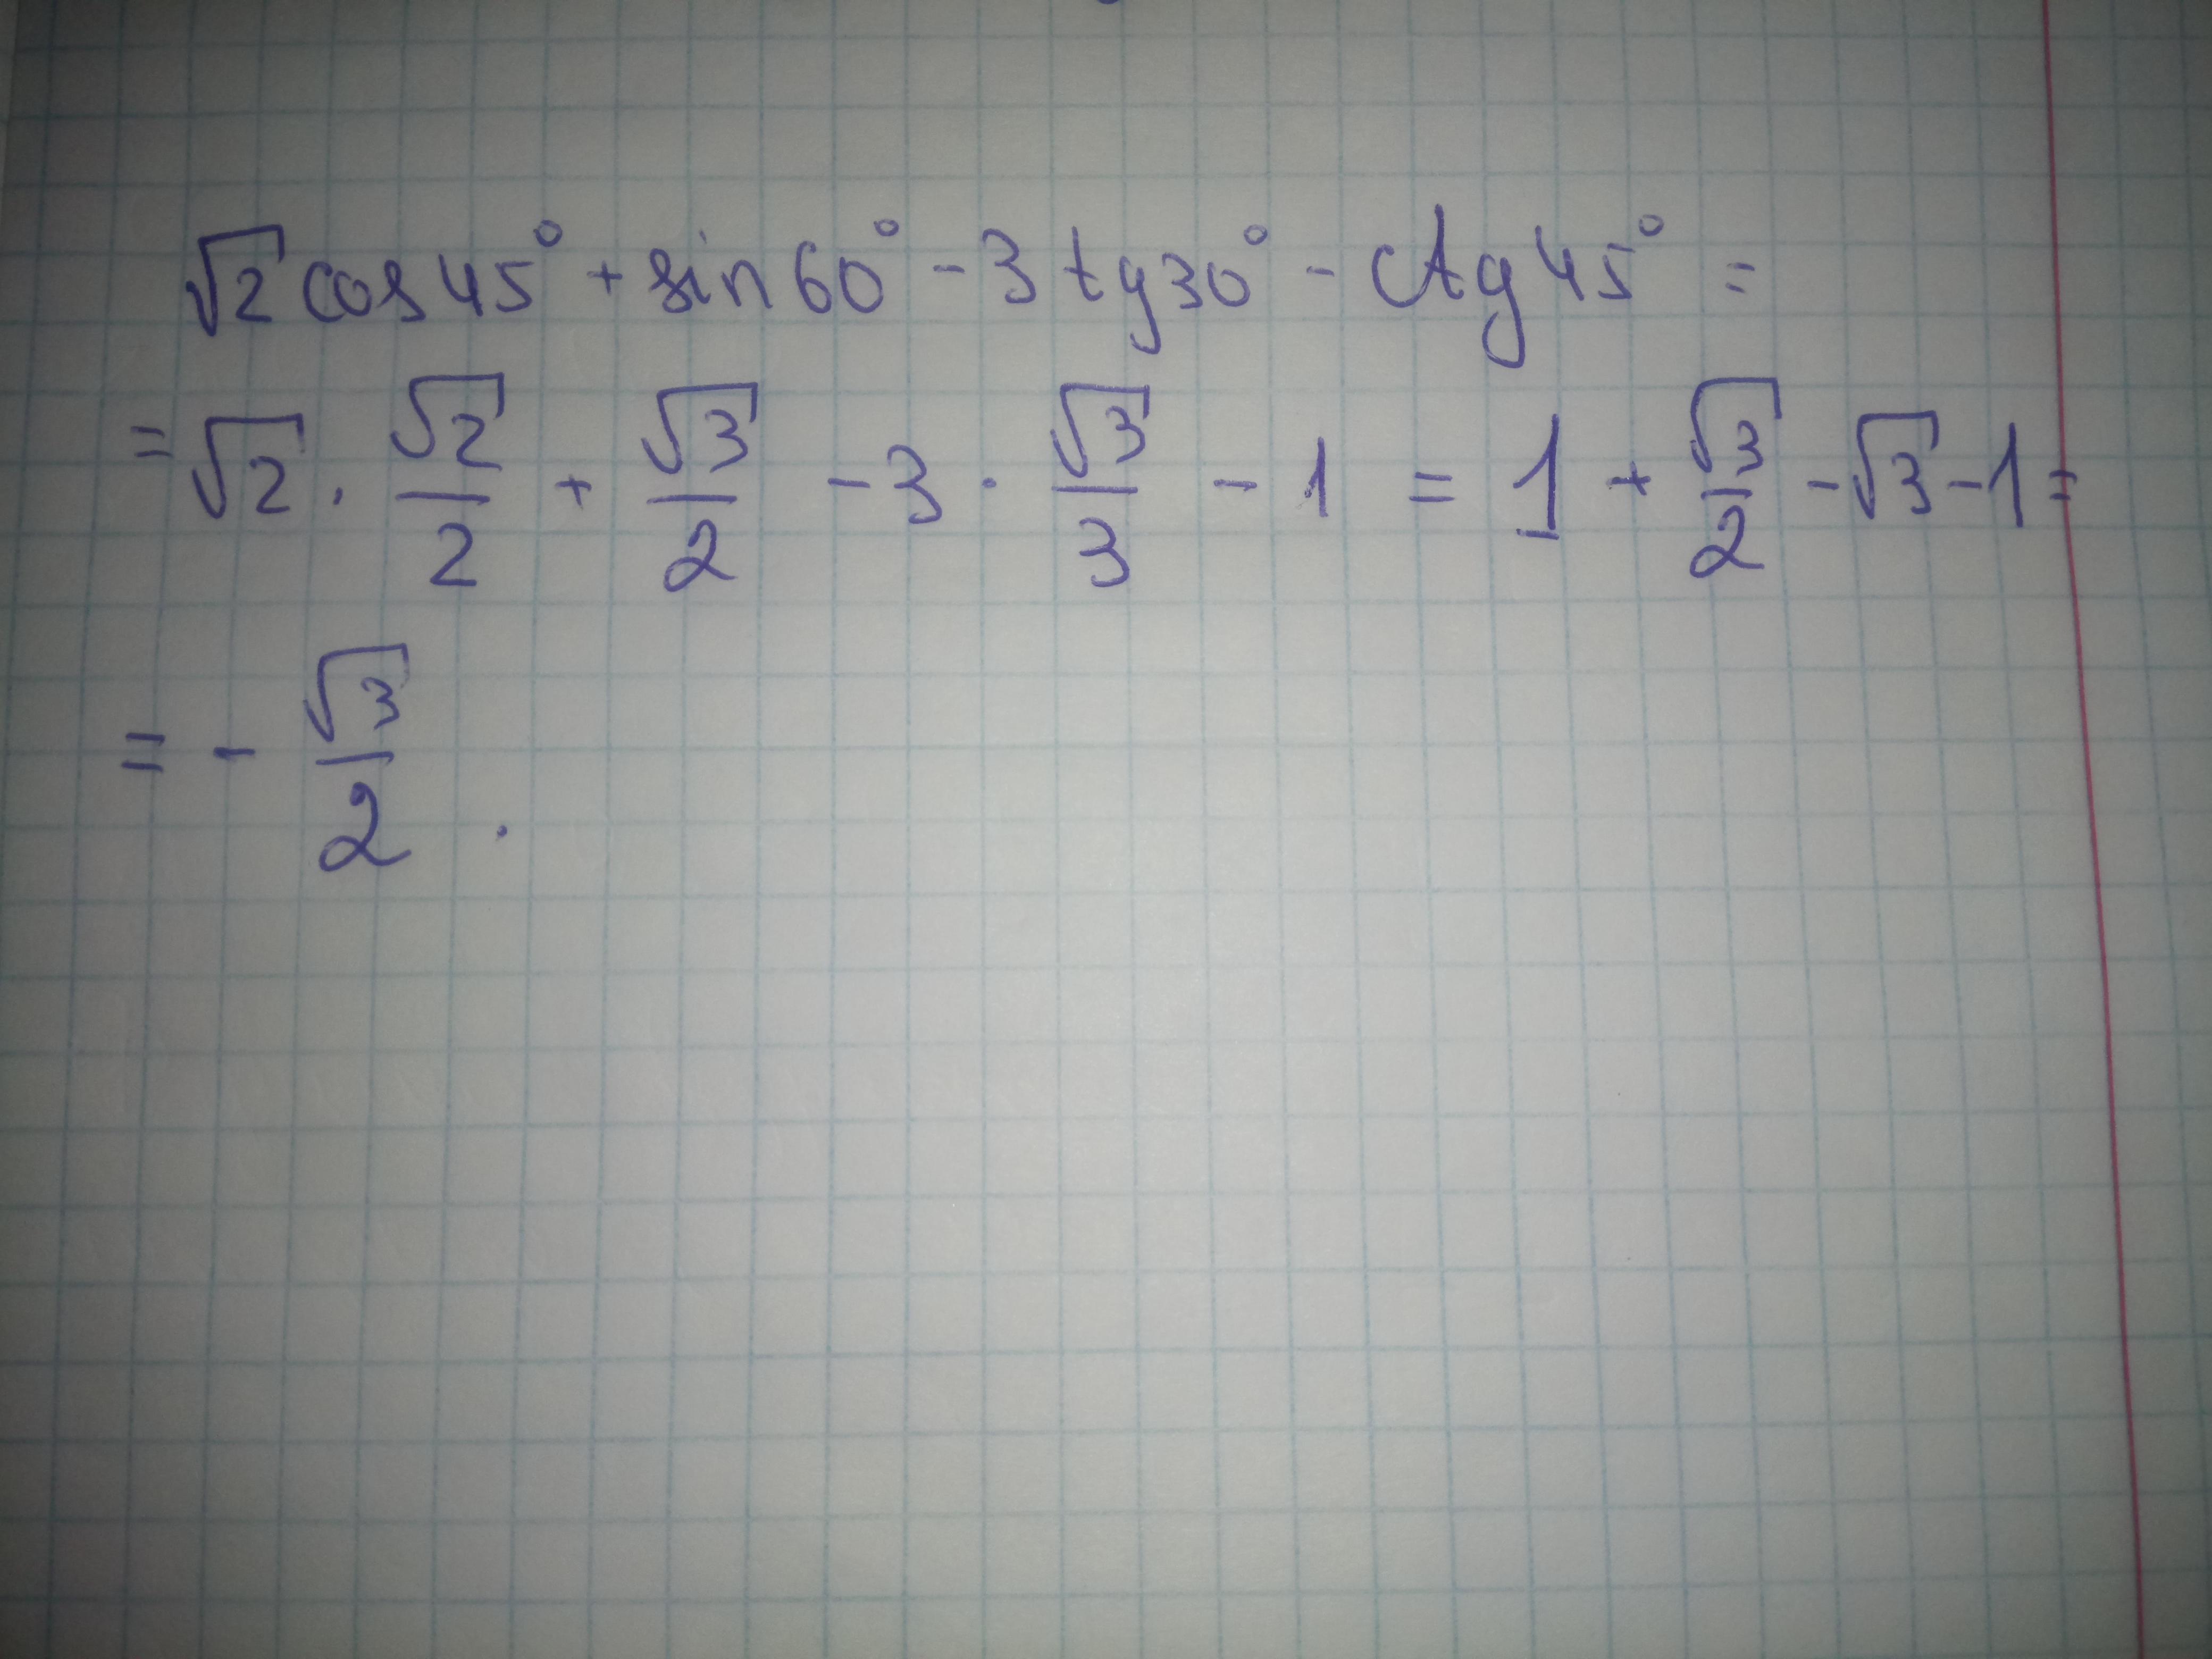 √2 cos 45° + sin 60° - 3 tg 30° - ctg 45° =
= √2 · √2/2 + √3/2 - 3 · √3/3 - 1 = 1 + √3/2 - √3 - 1 =
= - √3/2 .